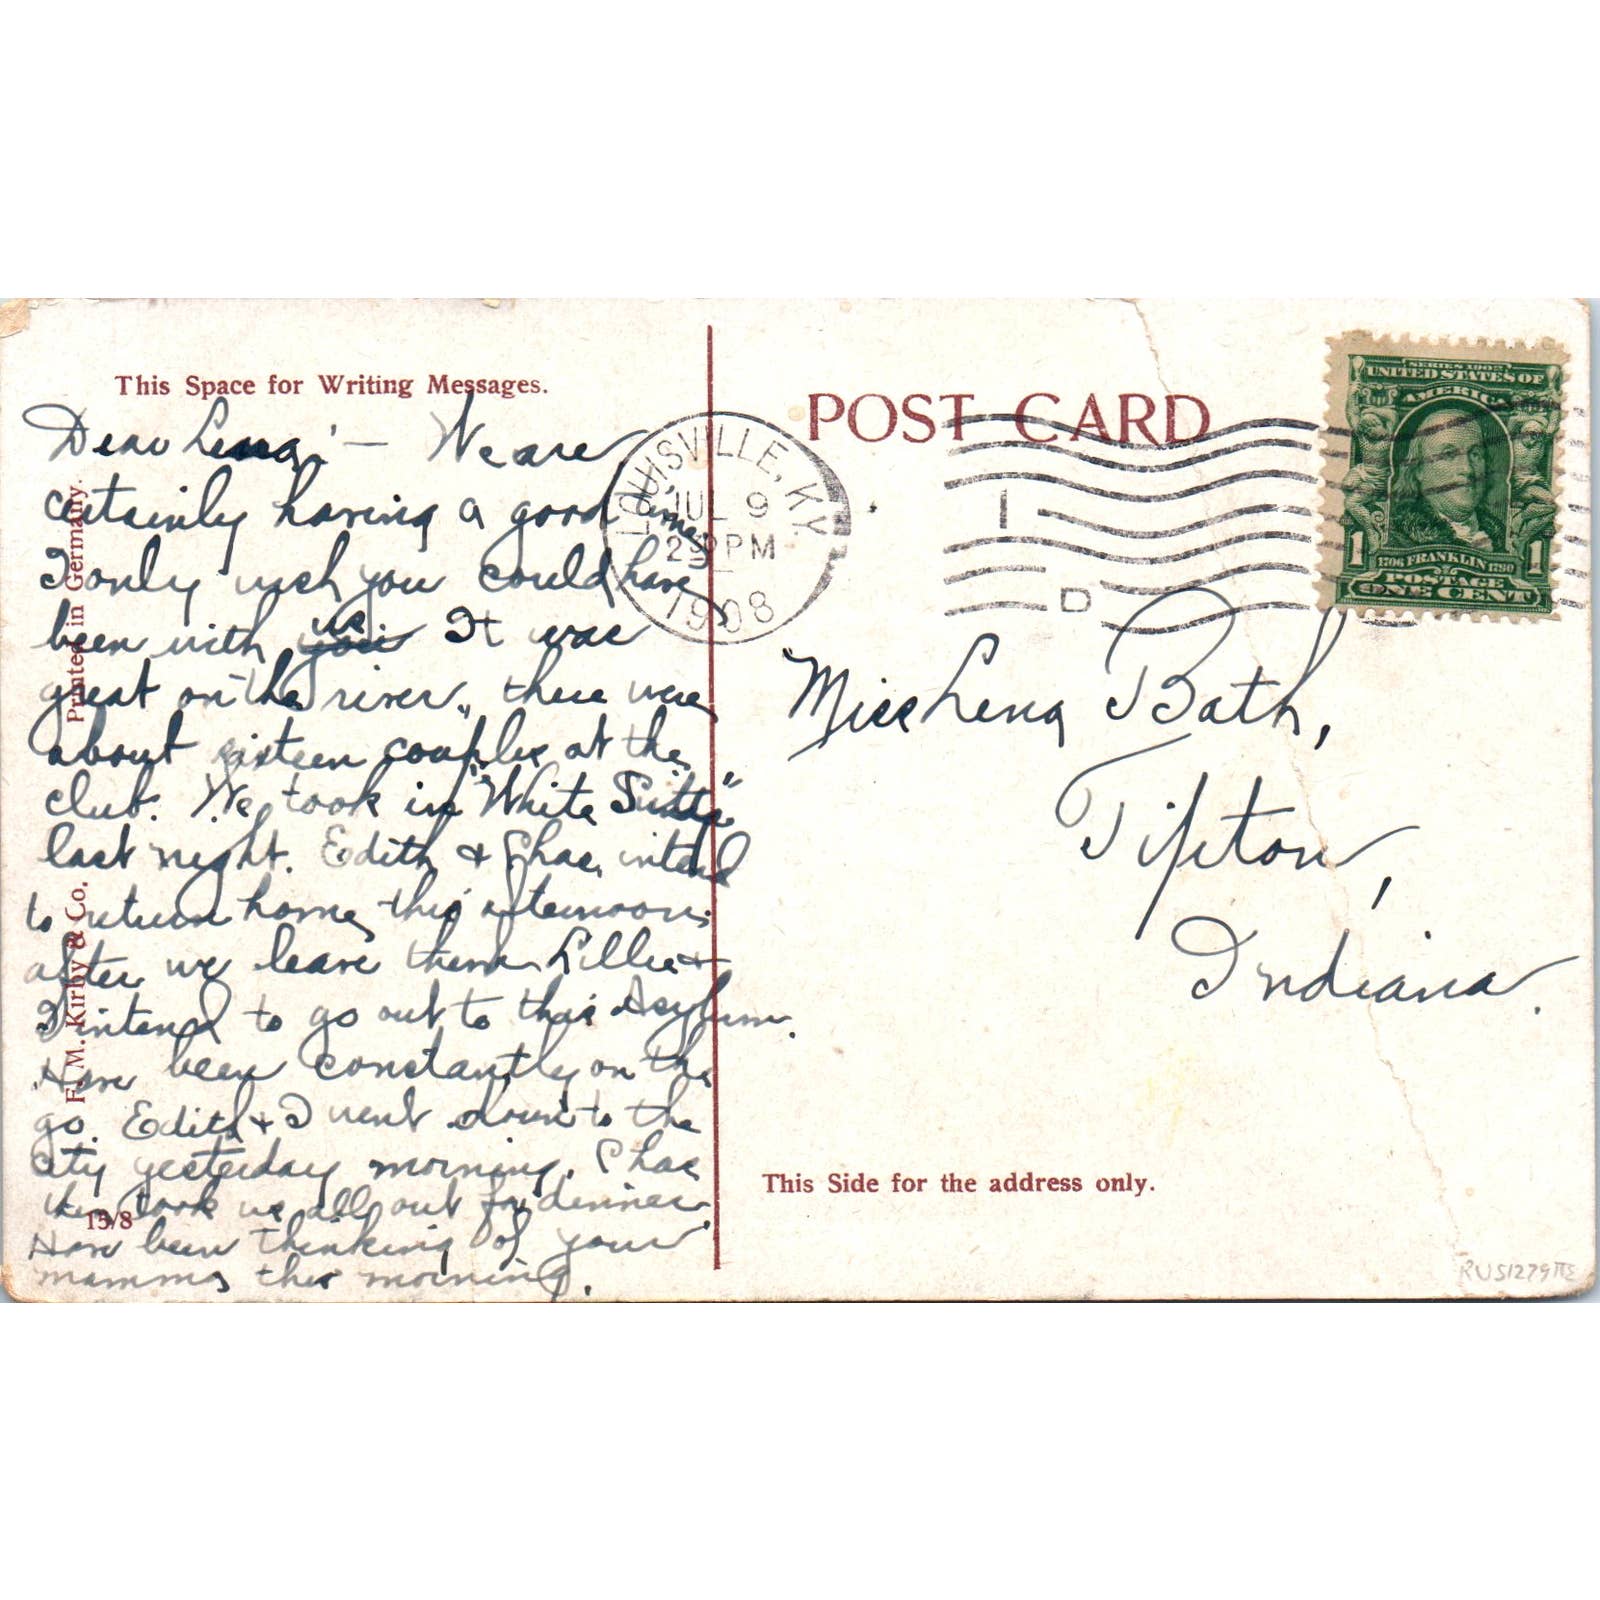 This Space for Writing Messages.
Dear Lena:— We are
certainly having a good time,
I only wish you could have
been with you us It was
great on the river, there were
about sixteen couples at the
club. We took in "White
last night. Edith & Chas. intend
to return home this afternoon;
after we leave them Lillie &
I intend to go out to the Asylum.
Have been constantly on the
go. Edith & I went down to the
city yesterday morning. Chas
then took us all out for dinner.
Have been thinking of your
mamma this morning.
Printed in Germany.
F. M. Kirby & Co.
15/8
POST CARD
LOUISVILLE, KY.
JUL 9
PM
1908
1
D
SERIES 1902
UNITED STATES OF
AMERICA
1 1
1706 FRANKLIN 1790
POSTAGE
ONE CENT
Miss Lena Bath,
Tipton,
Indiana.
This Side for the address only.